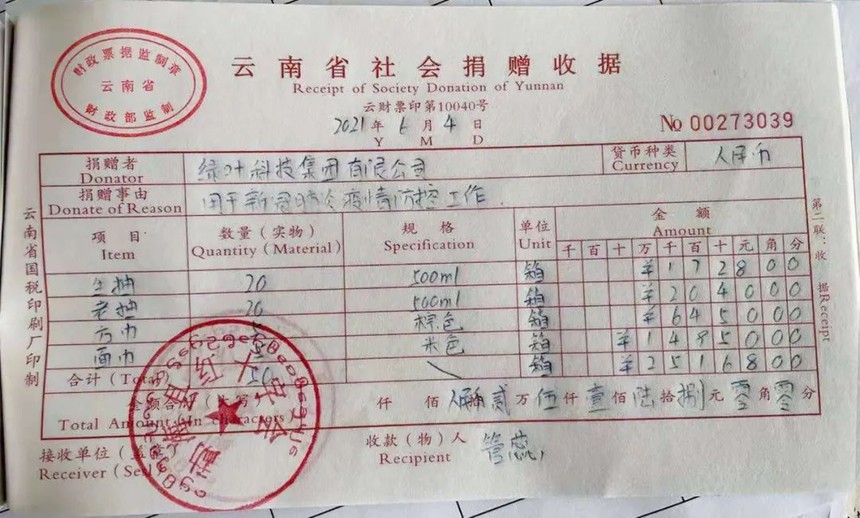 财政票据监制章
云南省
财政部监制
云南省社会捐赠收据
Receipt of Society Donation of Yunnan
云财票印第10040号
2021年6月4日
Y M D
No 00273039
捐赠者 绿叶科技集团有限公司 货币种类 人民币
Donator Currency
捐赠事由 用于新冠肺炎疫情防控工作.
Donate of Reason
项目 数量（实物） 规格 单位 金额
Item Quantity (Material) Specification Unit Amount
千 百 十 万 千 百 十 元 角 分
生抽 20 500ml 箱 ¥ 1 7 2 8 0 0
老抽 20 500ml 箱 ¥ 2 0 4 0 0 0
方巾 棕色 箱 ¥ 6 4 5 0 0 0
面巾 米色 箱 ¥ 1 4 9 5 0 0 0
合计（Total） 50 箱 ¥ 2 5 1 6 8 0 0
金额合计（大写） 仟 佰 贰万伍仟壹佰陆拾捌元零角零分
Total Amount (In characters)
接收单位（盖章） 收款（物）人 管蕊
Receiver (Seal) Recipient
云南省国税印刷厂印制
第二联：收据Receipt